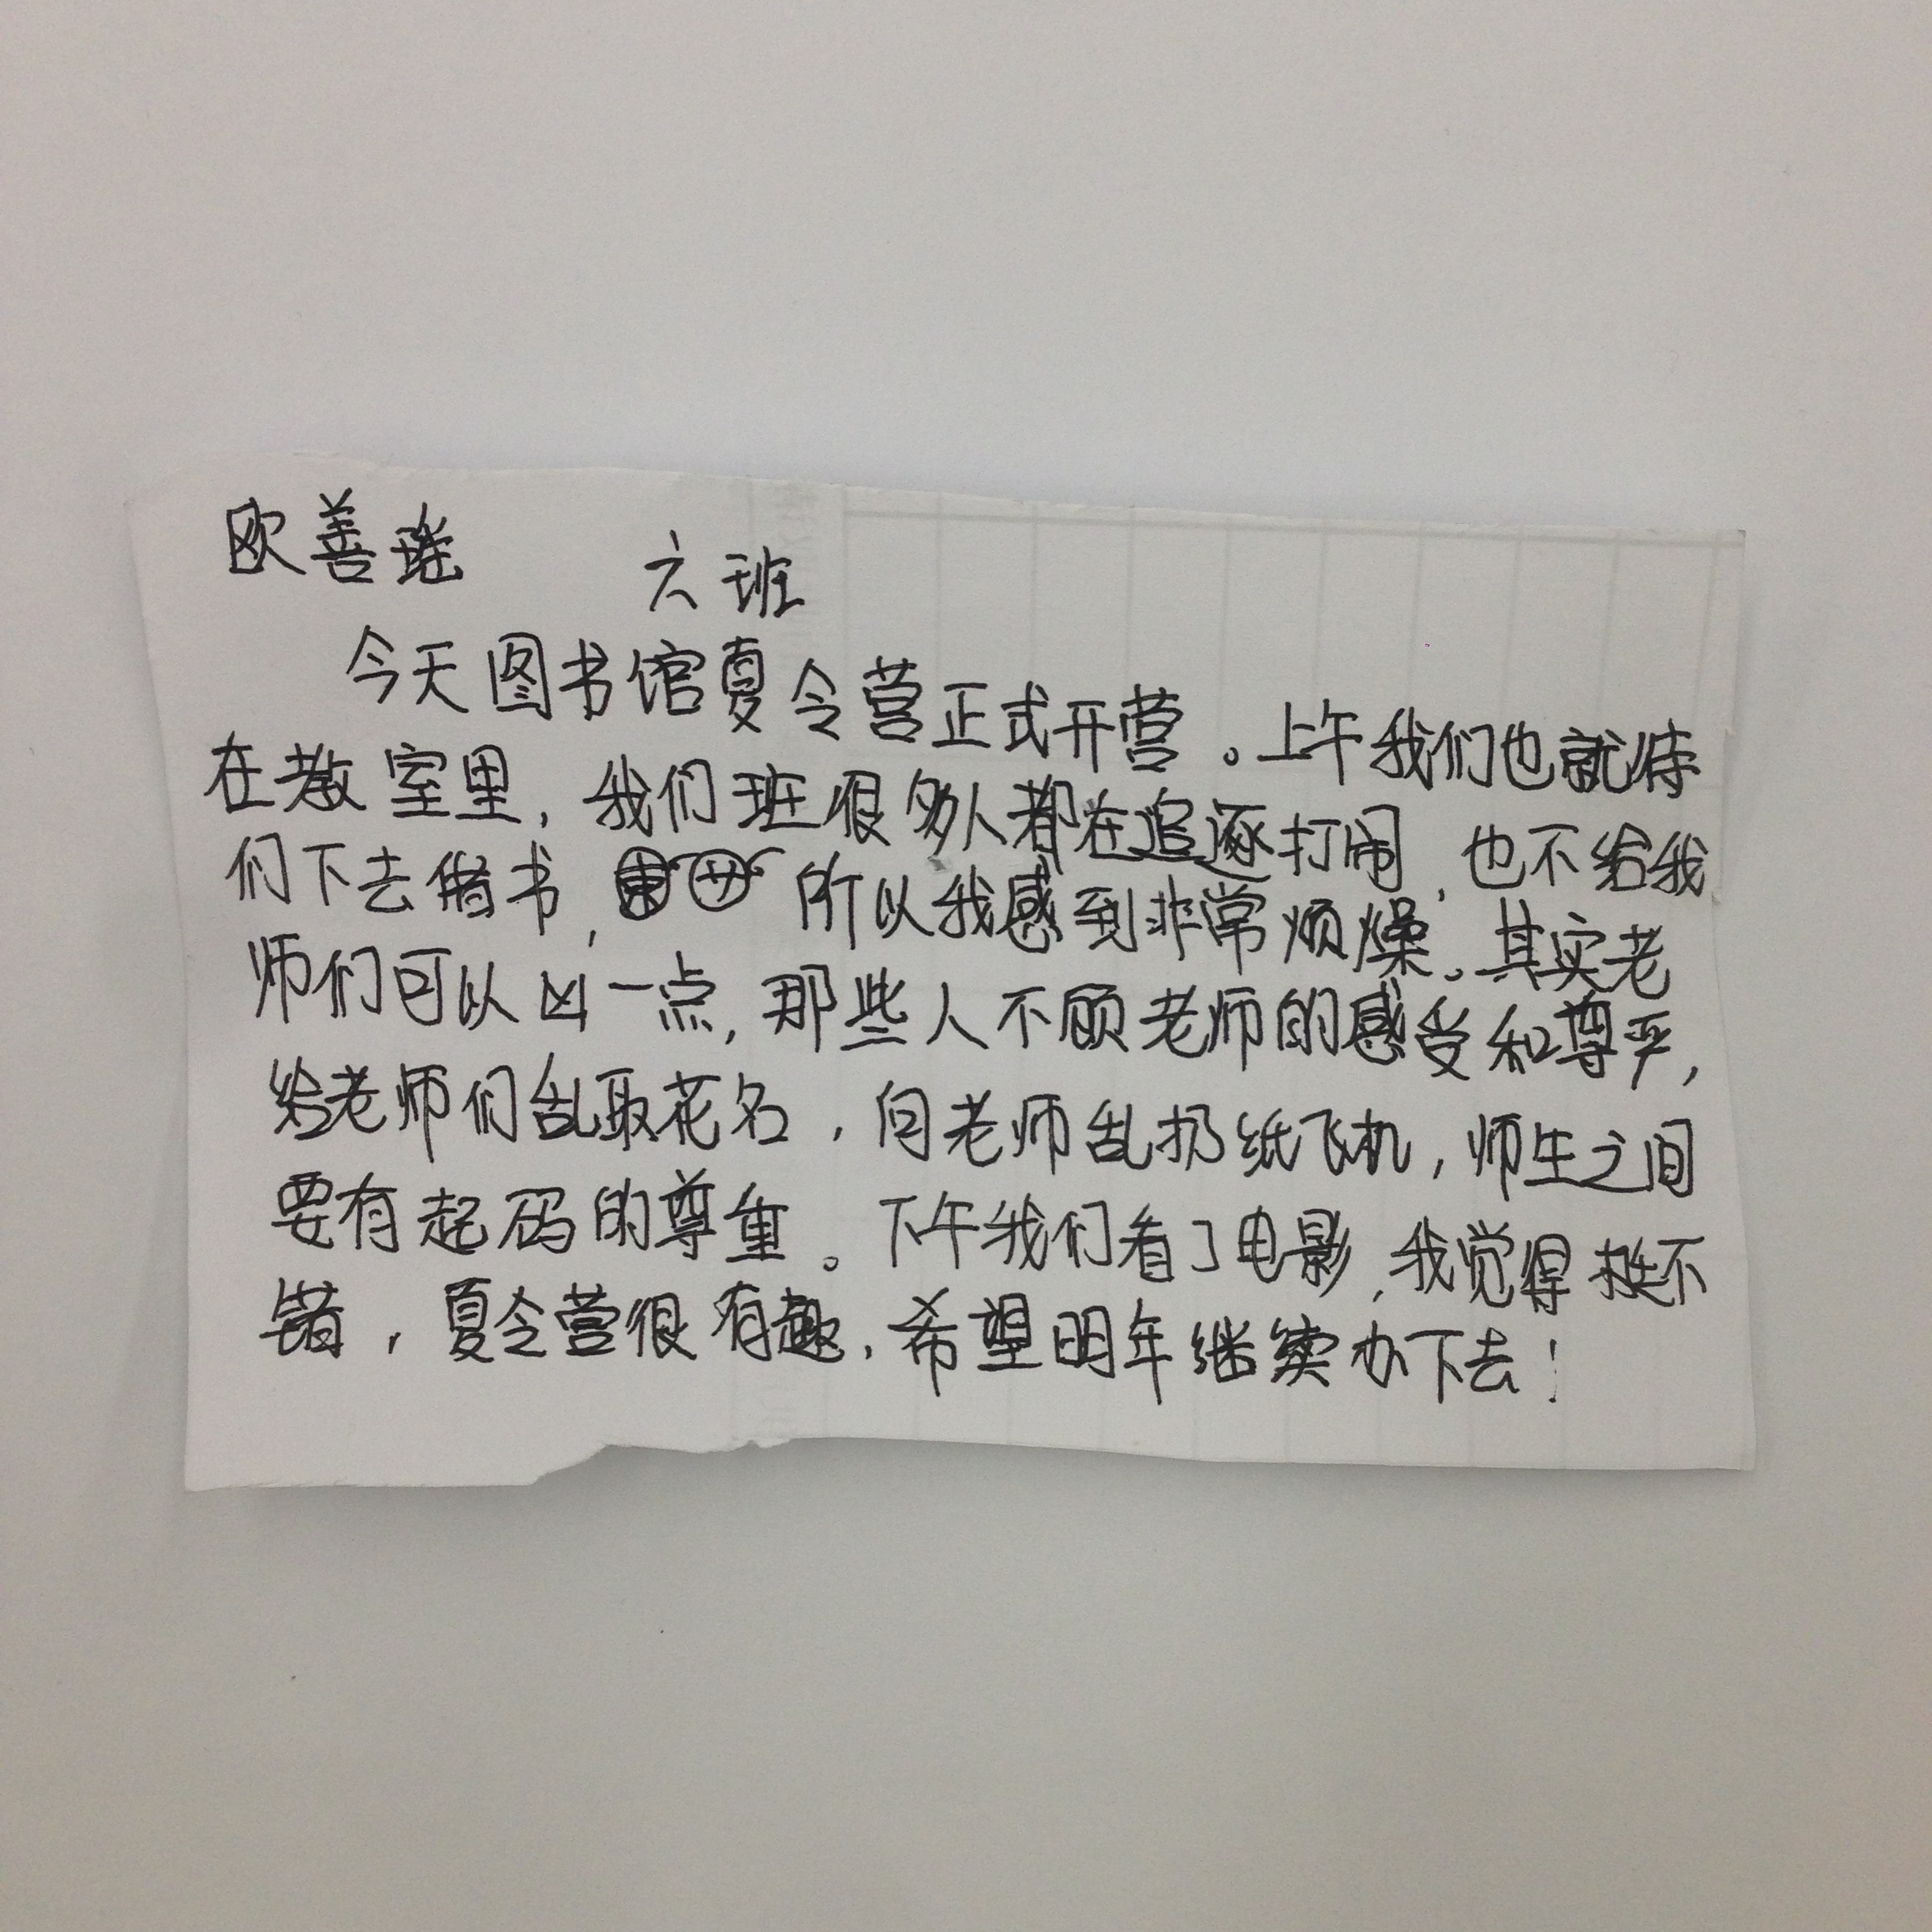 欧善瑶 六班
今天图书馆夏令营正式开营。上午我们也就待
在教室里，我们班很多人都在追逐打闹，也不给我
们下去借书，所以我感到非常烦燥。其实老
师们可以凶一点，那些人不顾老师的感受和尊严，
给老师们乱取花名，向老师乱扔纸飞机，师生之间
要有起码的尊重。下午我们看了电影，我觉得挺不
错，夏令营很有趣，希望明年继续办下去！